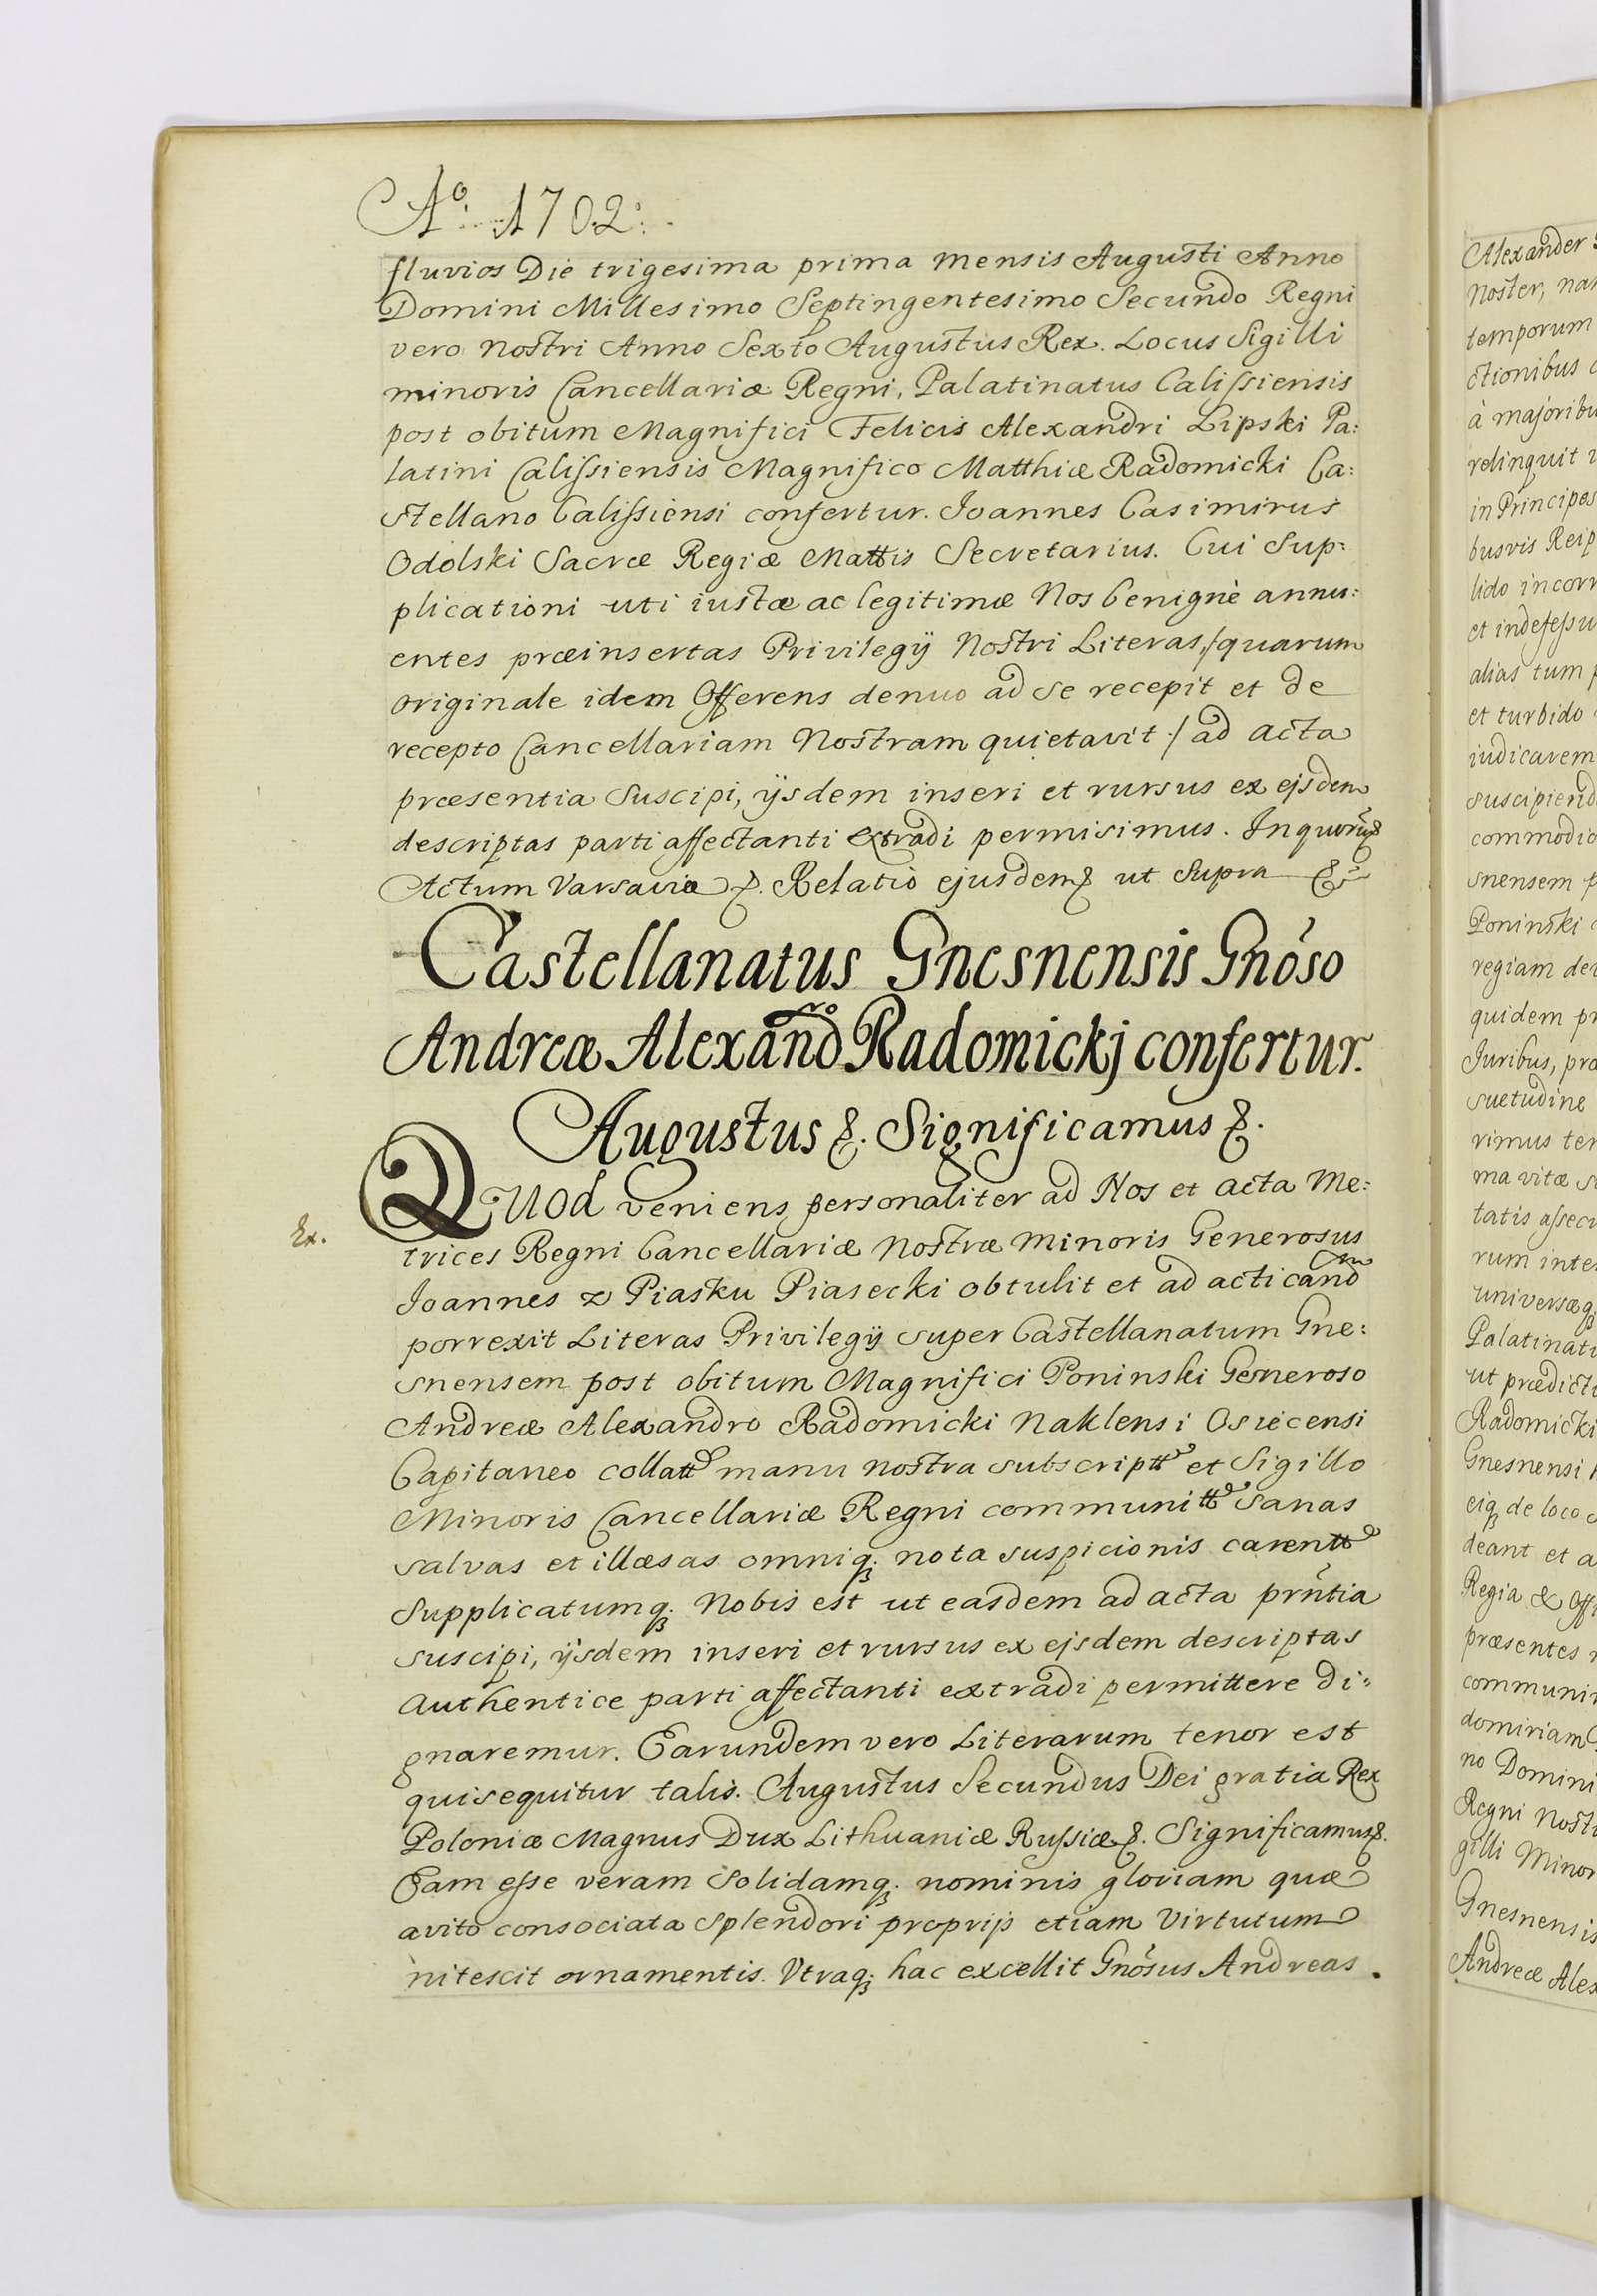 Aº 1702:
fluvios Die trigesima prima mensis Augusti Anno
Domini Millesimo Septingentesimo Secundo Regni
vero nostri Anno Sexto Augustus Rex. Locus Sigilli
minoris Cancellariæ Regni, Palatinatus Calissiensis
post obitum Magnifici Felicis Alexandri Lipski Pa:
latini Calissiensis Magnifico Matthiæ Radomicki Ca:
stellano Calissiensi confertur. Joannes Casimirus
Odolski Sacræ Regiæ Mattis Secretarius. Cui Sup:
plicationi uti iustæ ac legitimæ Nos benignè annu:
entes præinsertas Privilegij Nostri Literas,/quarum
originale idem Offerens denuo ad se recepit et de
recepto Cancellariam Nostram quietavit ·/ ad acta
præsentia suscipi, ijsdem inseri et rursus ex ejsdem
descriptas parti affectanti extradi permisimus. In quorũ &
Actum Varsaviæ &. Relatio ejusdem & ut Supra &
Castellanatus Gnesnensis Gnõso
Andreæ Alexandro Radomickj confertur.
Augustus &. Significamus &.
QUOd veniens personaliter ad Nos et acta Me:
Ex.
trices Regni Cancellariæ Nostræ Minoris Generosus
Joannes z Piasku Piasecki obtulit et ad acticandm
porrexit Literas Privilegij super Castellanatum Gne:
snensem post obitum Magnifici Poninski Generoso
Andreæ Alexandro Radomicki Naklensi Osiecensi
Capitaneo collatt manu nostra subscriptt et Sigillo
Minoris Cancellariæ Regni communitt sanas
salvas et illæsas omniq; nota suspicionis carentt
Supplicatumq; Nobis est ut easdem ad acta prñtia
suscipi, ijsdem inseri et rursus ex ejsdem descriptas
authentice parti affectanti extradi permittere di:
gnaremur. Earundem vero Literarum tenor est
qui sequitur talis. Augustus Secundus Dei gratia Rex
Poloniæ Magnus Dux Lithuaniæ Russiæ &. Significamus &.
Eam esse veram solidamq; nominis gloriam quæ
avito consociata splendori proprijs etiam Virtutum
nitescit ornamentis. Utraq; hac excellit Gnõsus Andreas
Alexander
Noster, nam
temporum
ctionibus
à majoribu
relinquit
in Principes
busvis Reip
lido incorr
et indefessu
alias tum
et turbido
iudicarem
suscipiend
commodio
snensem
Poninski
regiam de
quidem pr
Juribus, pra
suetudine
rimus ter
ma vitæ
tatis assecu
rum inte
universæq;
Palatinatu
ut prædicti
Radomicki
Gnesnensi
eiq; de loco
deant et a
Regia & Offi
præsentes
communi
domiriam
no Domini
Regni Nostr
gilli Minor
Gnesnensis
Andreæ Alex